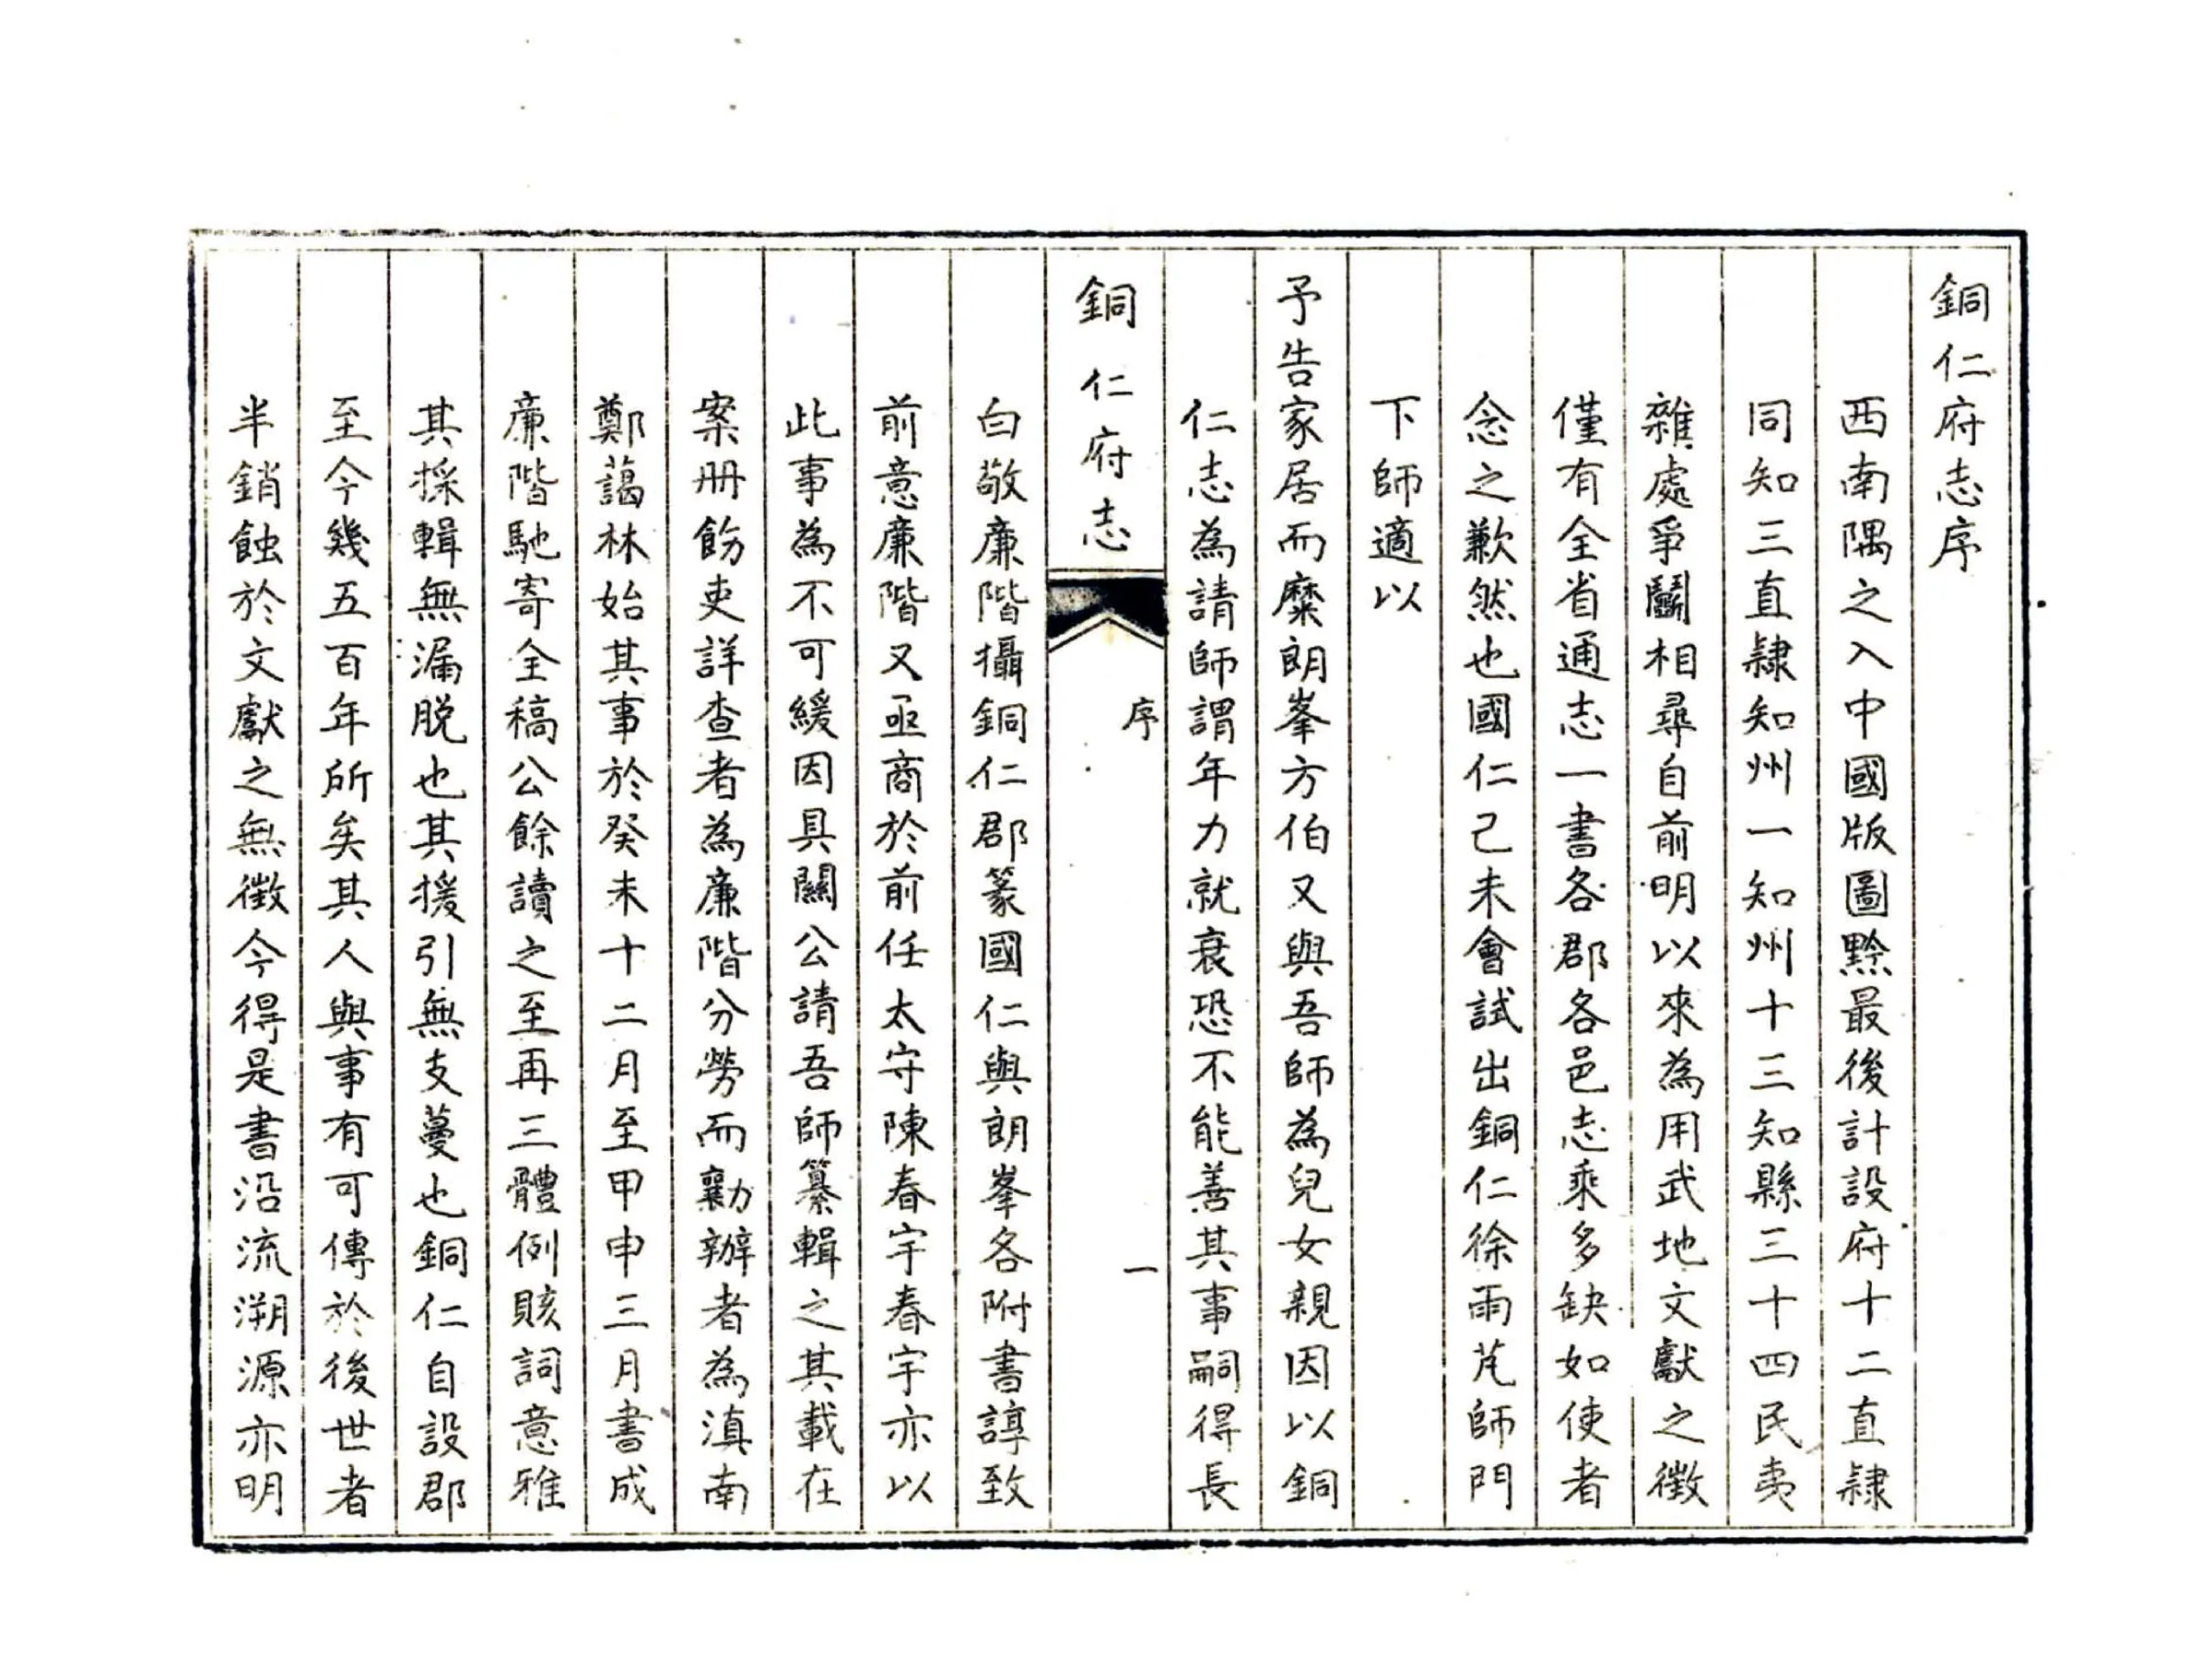 銅仁府志序
西南隅之入中國版圖黔最後計設府十二直隸
同知三直隸知州一知州十三知縣三十四民夷
雜處爭鬭相尋自前明以來為用武地文獻之徵
僅有全省通志一書各郡各邑志乘多缺如使者
念之歉然也國仁己未會試出銅仁徐雨芃師門
下師適以
予告家居而縻朗峯方伯又與吾師為兒女親因以銅
仁志為請師謂年力就衰恐不能善其事嗣得長
銅仁府志
序
一
白敬廉階攝銅仁郡篆國仁與朗峯各附書諄致
前意廉階又亟商於前任太守陳春宇春宇亦以
此事為不可緩因具關公請吾師纂輯之其載在
案冊飭吏詳查者為廉階分勞而勷辦者為滇南
鄭藹林始其事於癸未十二月至甲申三月書成
廉階馳寄全稿公餘讀之至再三體例賅詞意雅
其採輯無漏脱也其援引無支蔓也銅仁自設郡
至今幾五百年所矣其人與事有可傳於後世者
半銷蝕於文獻之無徵今得是書沿流溯源亦明